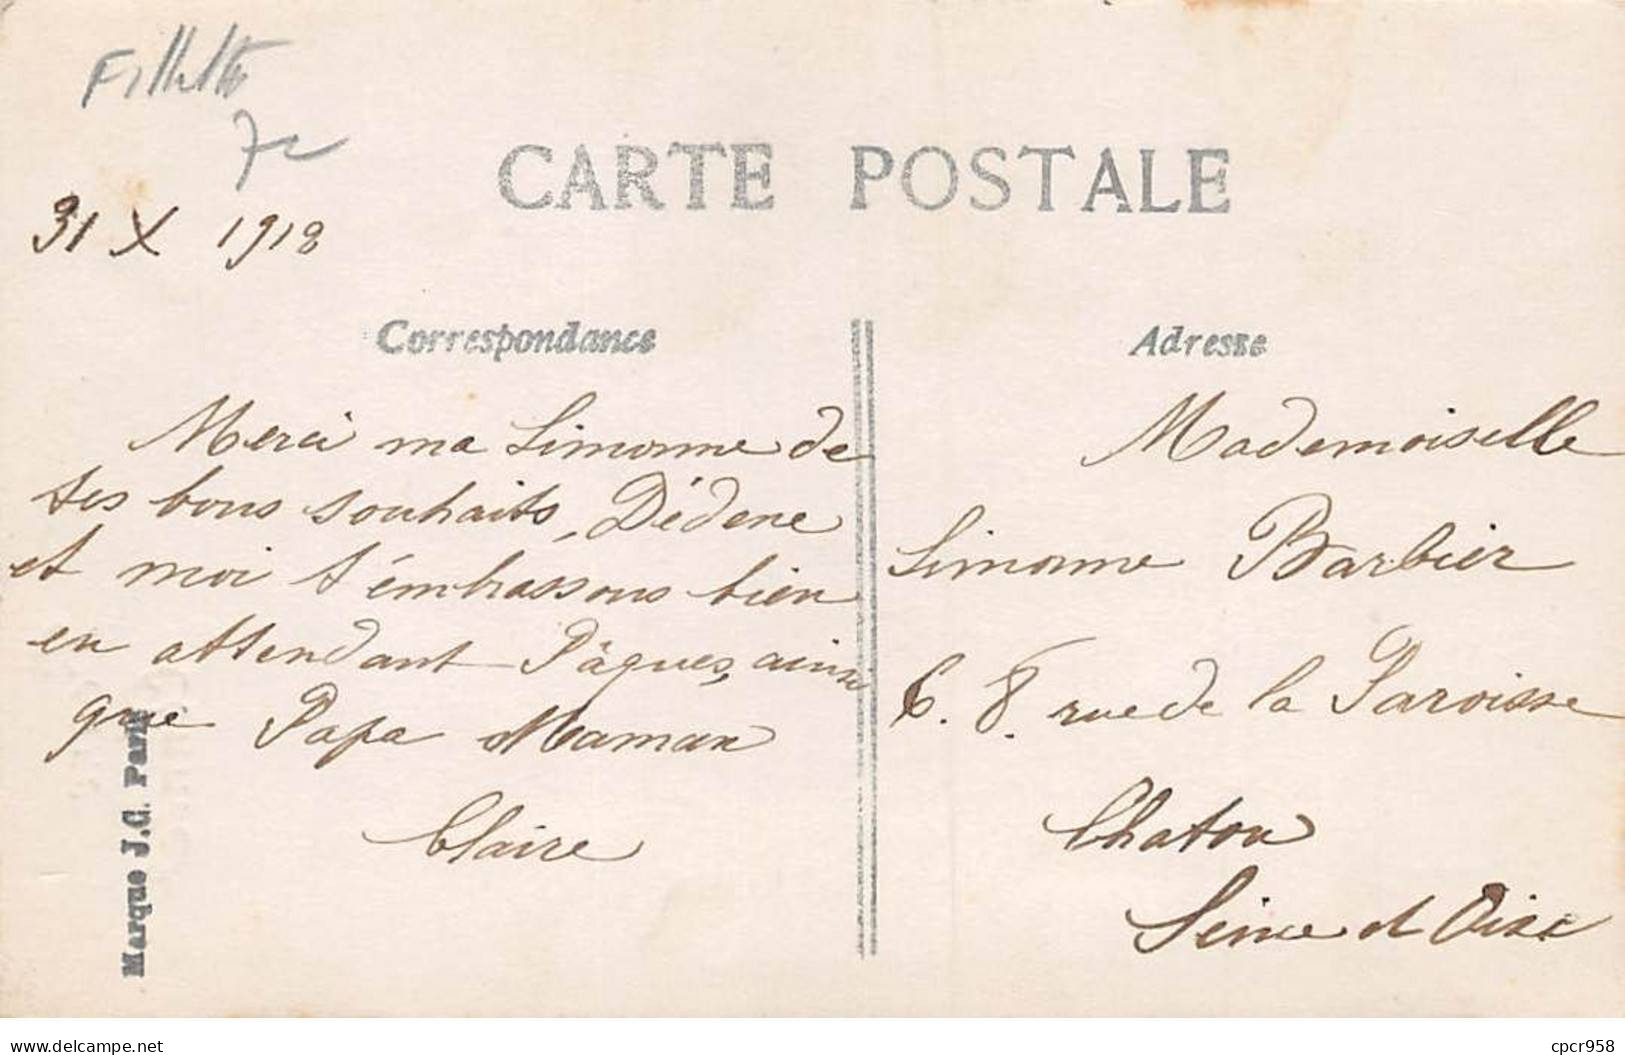 Fillette
CARTE POSTALE
31 X 1918
Correspondance
Merci ma Simonne de
tes bons souhaits, Dédene
et moi t'émbrassons bien
en attendant Pâques, ainsi
que Papa Maman
Claire
Marque J.C. Paris
Adresse
Mademoiselle
Simonne Barbier
6. 8. rue de la Paroisse
Chatou
Seine et Oise
delcampe.net
cpcr958